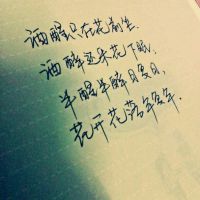 酒醒只在花前坐.
酒醉还来花下眠,
半醒半醉日复日,
花开花落年复年.